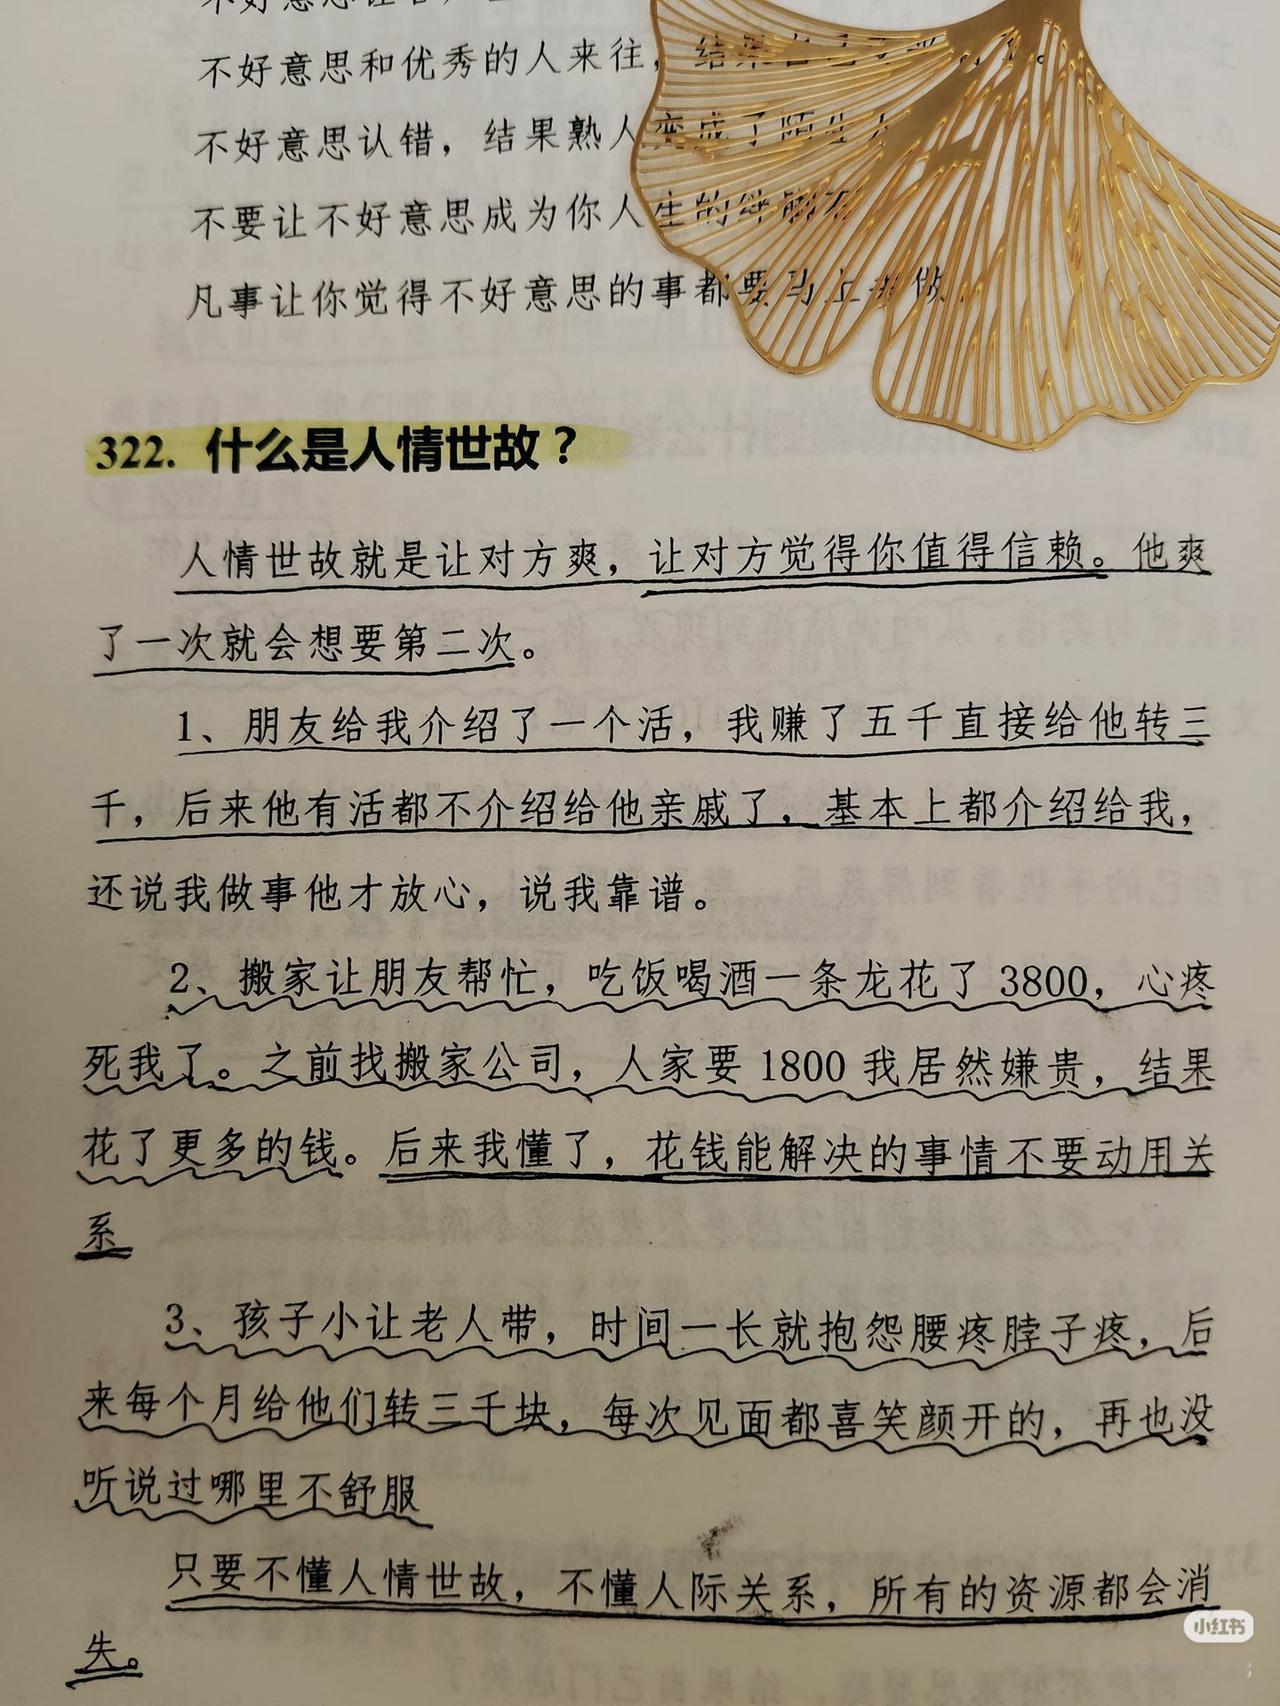 不好意思
不好意思和优秀的人来往，结果
不好意思认错，结果熟人变成了陌生人
不要让不好意思成为你人生的绊脚石
凡事让你觉得不好意思的事都要马上去做
322. 什么是人情世故？
人情世故就是让对方爽，让对方觉得你值得信赖。他爽
了一次就会想要第二次。
1、朋友给我介绍了一个活，我赚了五千直接给他转三
千，后来他有活都不介绍给他亲戚了，基本上都介绍给我，
还说我做事他才放心，说我靠谱。
2、搬家让朋友帮忙，吃饭喝酒一条龙花了 3800，心疼
死我了。之前找搬家公司，人家要 1800 我居然嫌贵，结果
花了更多的钱。后来我懂了，花钱能解决的事情不要动用关
系
3、孩子小让老人带，时间一长就抱怨腰疼脖子疼，后
来每个月给他们转三千块，每次见面都喜笑颜开的，再也没
听说过哪里不舒服
只要不懂人情世故，不懂人际关系，所有的资源都会消
失。
小红书